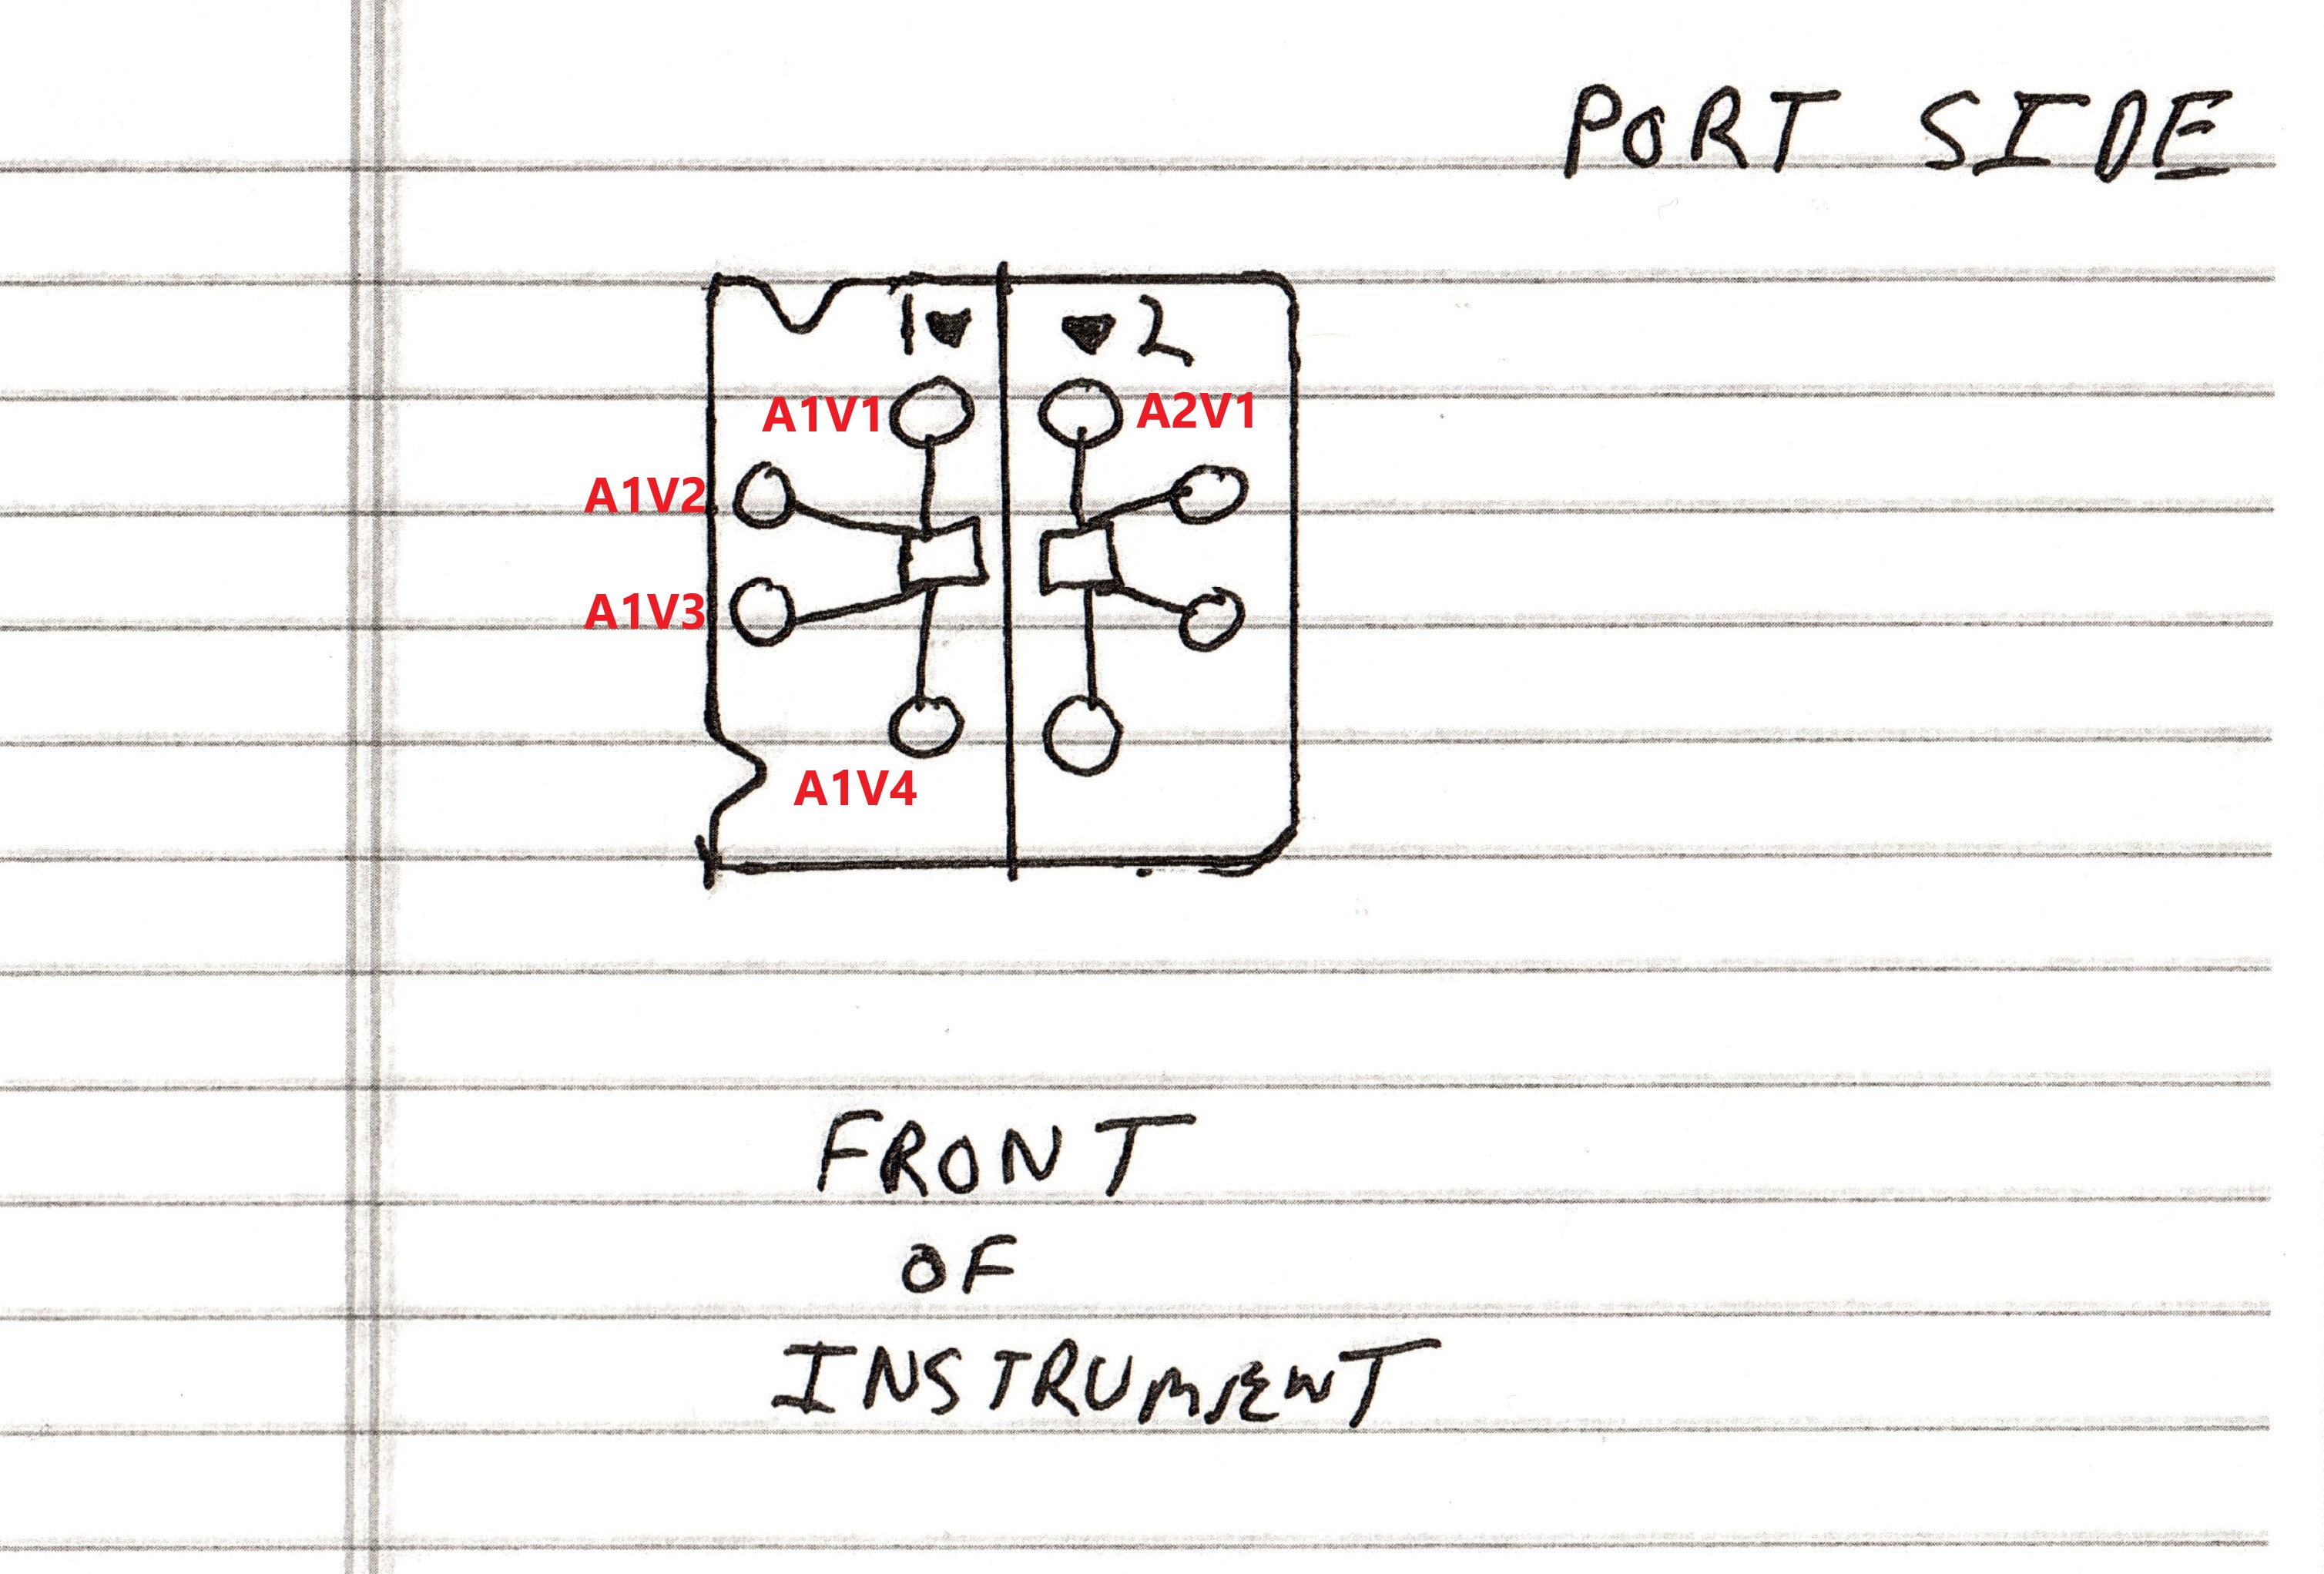 PORT SIDE
1 2
A1V1 A2V1
A1V2
A1V3
A1V4
FRONT
OF
INSTRUMENT